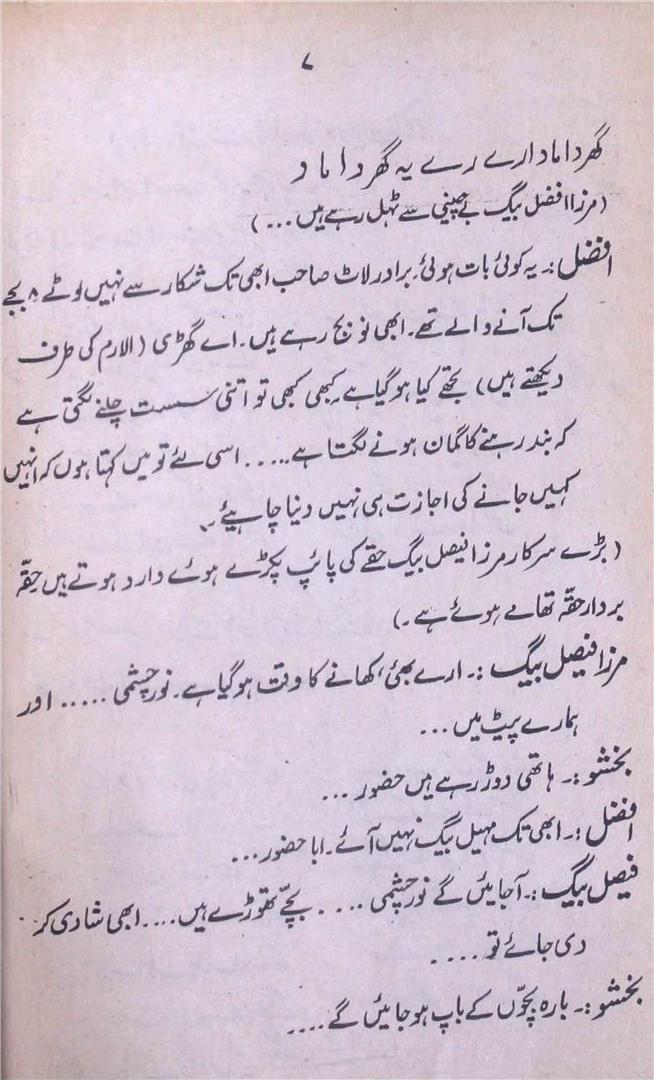 ۷
گھر داماد ارے رے یہ گھر داماد
(مرزا افضل بیگ بے چینی سے ٹہل رہے ہیں...)
افضل :۔ یہ کوئی بات ہوئی۔ برادر لاٹ صاحب ابھی تک شکار سے نہیں لوٹے ۸ بجے
تک آنے والے تھے۔ ابھی نو بج رہے ہیں۔ اے گھڑی (الارم کی طرف
دیکھتے ہیں) تجھے کیا ہو گیا ہے کبھی کبھی تو اتنی سست چلنے لگتی ہے
کہ بند رہنے کا گمان ہونے لگتا ہے..... اسی لئے تو میں کہتا ہوں کہ انہیں
کہیں جانے کی اجازت ہی نہیں دینا چاہیئے۔
(بڑے سرکار مرزا فیصل بیگ حقے کی پائپ پکڑے ہوئے وارد ہوتے ہیں حقّہ
بردار حقّہ تھامے ہوئے ہے۔)
مرزا فیصل بیگ :۔ ارے بھئی، کھانے کا وقت ہو گیا ہے۔ نور چشمی ..... اور
ہمارے پیٹ میں ...
بخشو :۔ ہاتھی دوڑ رہے ہیں حضور ...
افضل :۔ ابھی تک سہیل بیگ نہیں آئے۔ ابا حضور ...
فیصل بیگ :۔ آجائیں گے نور چشمی .... بچّے تھوڑے ہیں .... ابھی شادی کر
دی جائے تو ....
بخشو :۔ بارہ بچّوں کے باپ ہو جائیں گے ....